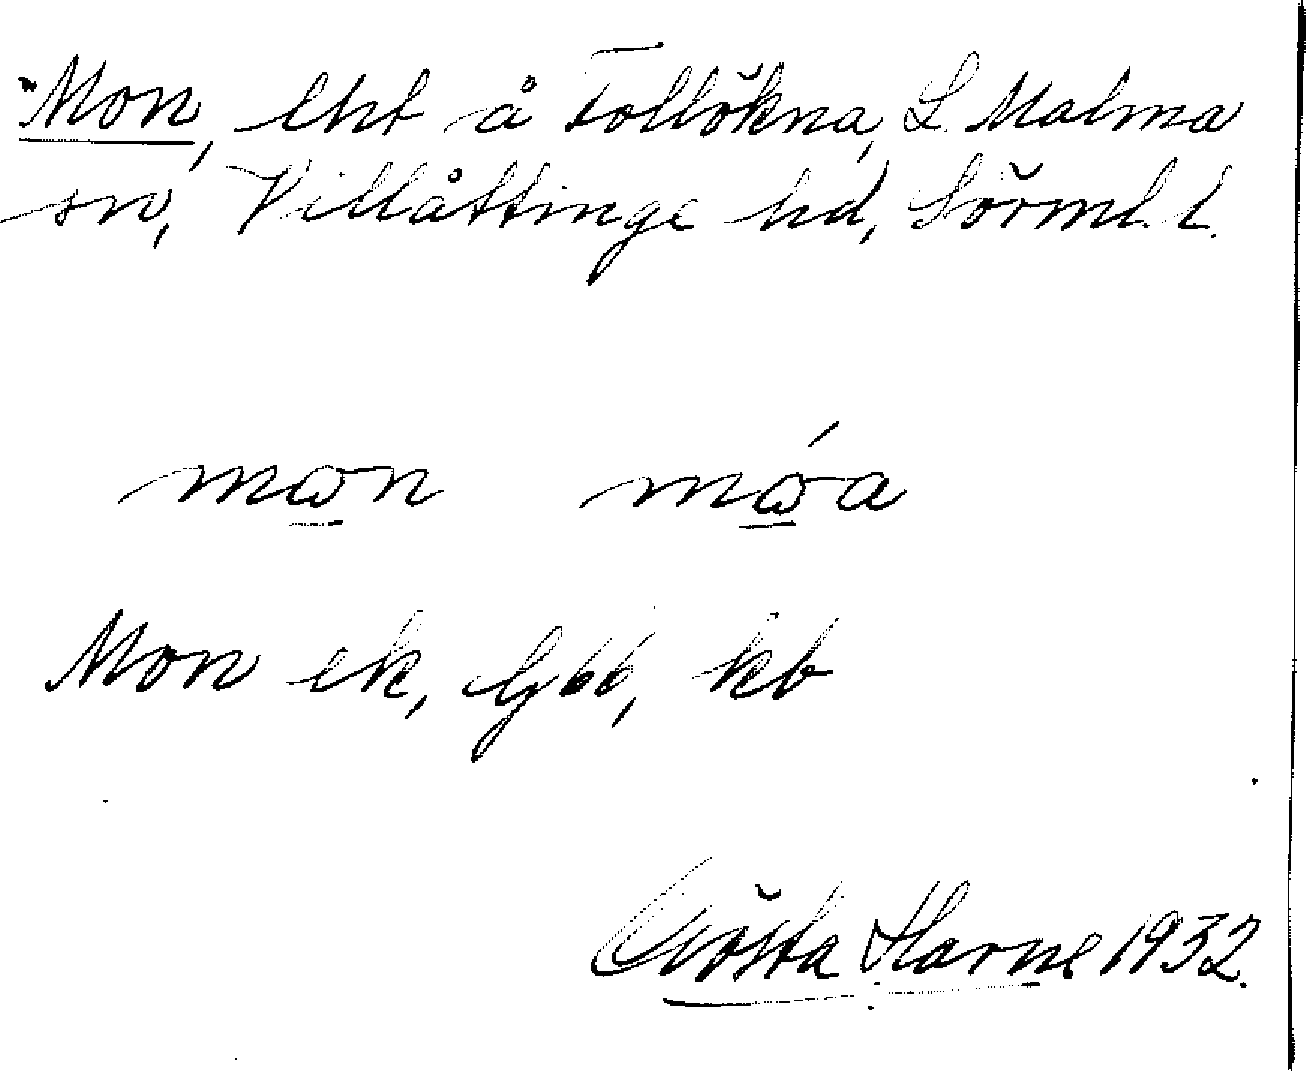 Mon, lht å Tollökna, L. Malma
sn, Villåttinge hd, Sörml. l.
mωn mώa
Mon ek, G66, kb
Gösta Harne 1932.